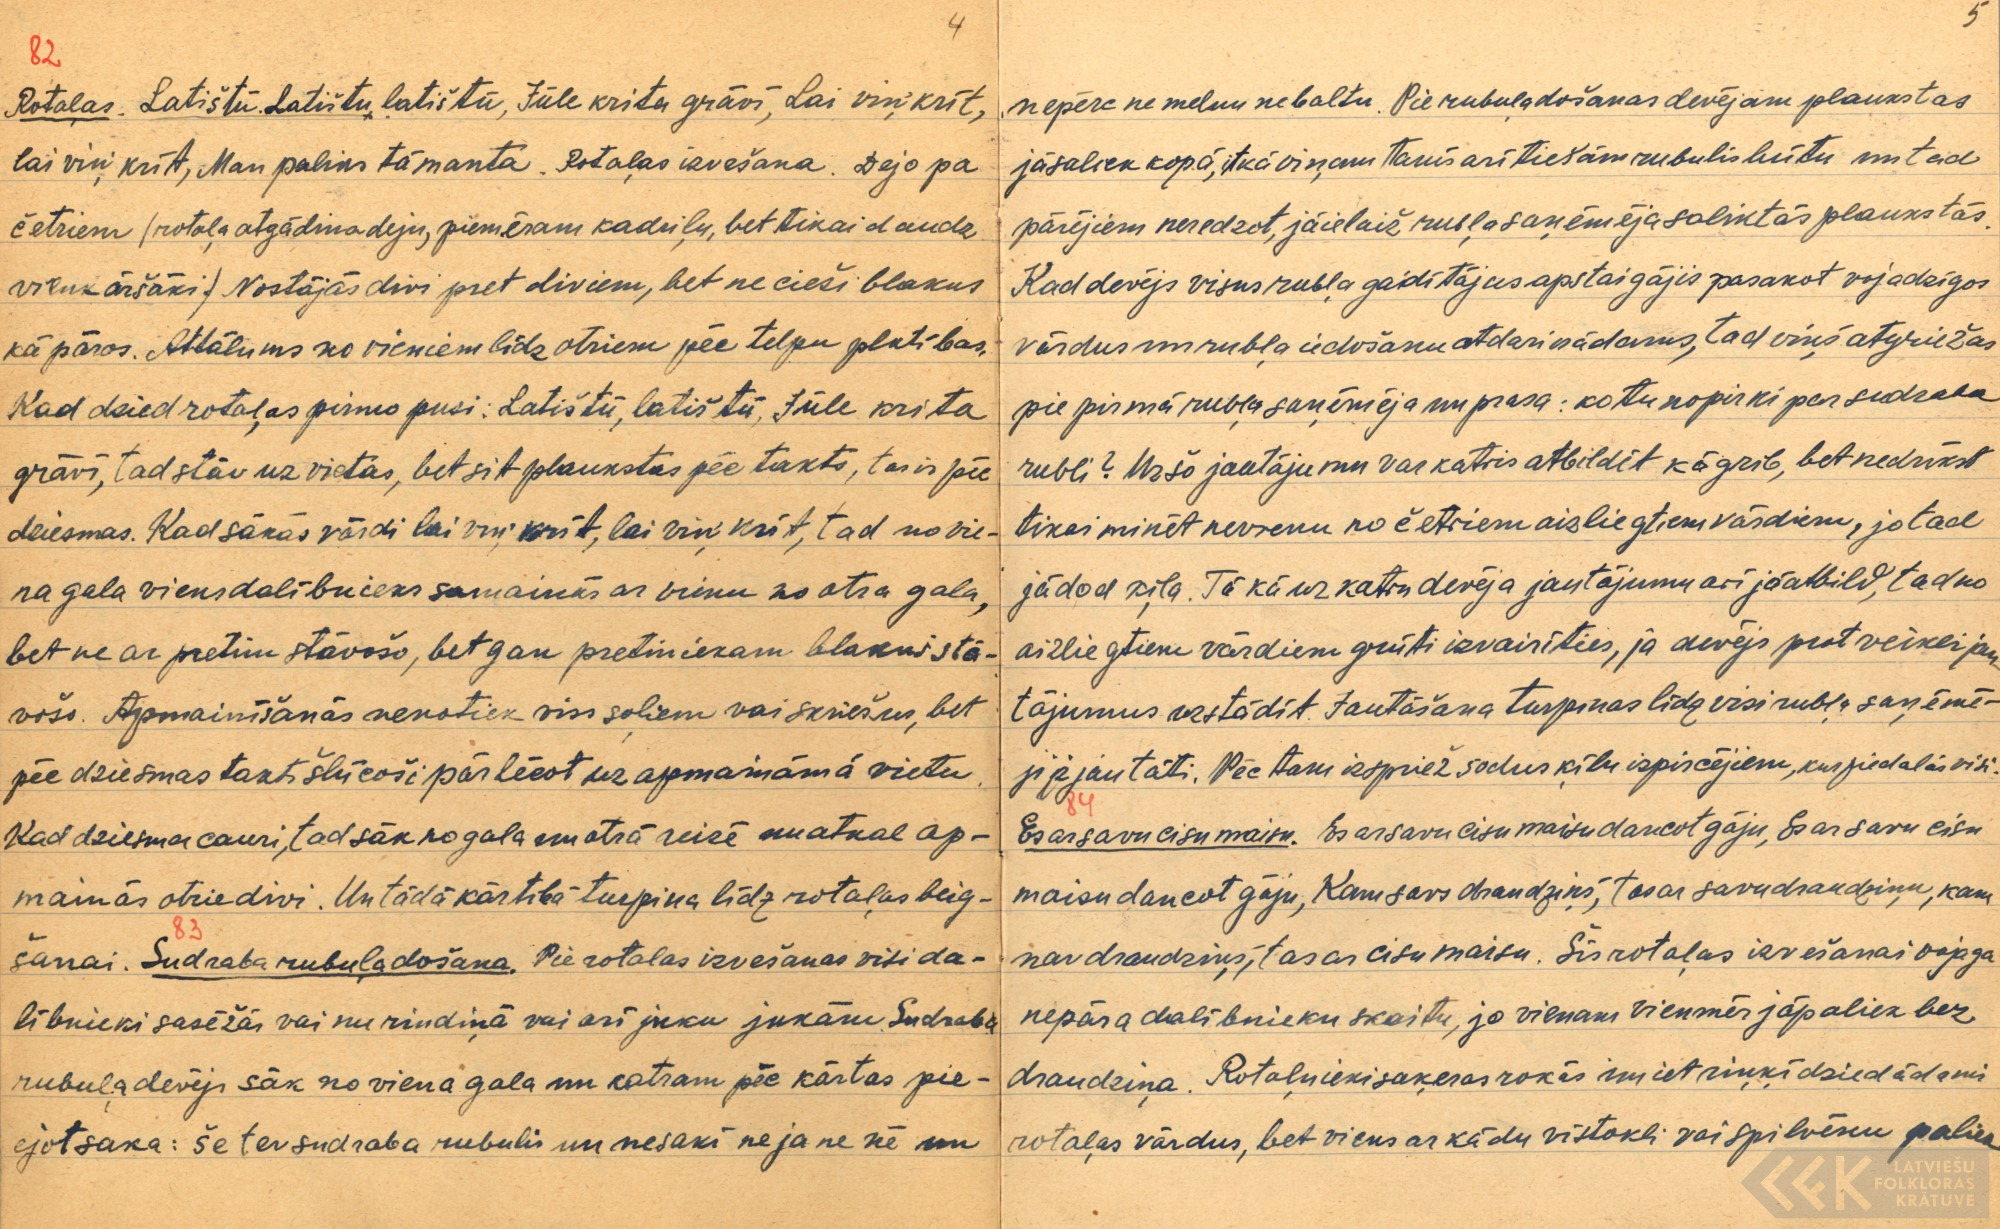 4
82
Rotaļas. Latištū. Latištu, latištū, Jūle krita grāvī, Lai viņ krīt,
lai viņ krīt, Man paliks tā manta. Rotaļas izvešana. Dejo pa
četriem (rotaļa atgādina deju, piemēram kadriļu, bet tikai daudz
vienkāršāki) Nostājās divi pret diviem, bet ne cieši blakus
kā pāros. Attālums no vieniem līdz otriem pēc telpu platības.
Kad dzied rotaļas pirmo pusi: Latištū, latištū, Jūle krita
grāvī, tad stāv uz vietas, bet sit plaukstas pēc takts, tas ir pēc
dziesmas. Kad sākas vārdi lai viņ krīt, lai viņ krīt, tad no vie-
na gala viens dalībnieks samainās ar vienu no otra gala,
bet ne ar pretim stāvošo, bet gan pretiniekam blakus stā-
vošo. Apmainīšanās nenotiek viss soļiem vai skriešus, bet
pēc dziesmas takts šļūcoši pārlēcot uz apmaināmā vietu.
Kad dziesma cauri, tad sāk no gala un otrā reizē nu atkal ap-
mainās otrie divi. Un tādā kārtībā turpina līdz rotaļas beig-
83
šanai. Sudraba rubuļa došana. Pie rotaļas izvešanas visi da-
lībnieki sasēžās vai nu rindiņā vai arī juku jukām Sudraba
rubuļa devējs sāk no viena gala un katram pēc kārtas pie-
ejot saka: še tev sudraba rubulis un nesaki ne ja ne nē un
5
nepērc ne melnu ne baltu. Pie rubuļa došanas devējam plaukstas
jāsaliek kopā, itkā viņam tanīs arī tiešām rubulis būtu un tad
pārējiem neredzot, jāielaiž rubļa saņēmēja saliktās plaukstās.
Kad devējs visus rubļa gaidītājus apstaigājis pasakot vajadzīgos
vārdus un rubļa iedošanu atdarinādams, tad viņš atgriežas
pie pirmā rubļa saņēmēja un prasa: ko tu nopirki par sudraba
rubli? Uz šo jautājumu var katris atbildēt kā grib, bet nedrīkst
tikai minēt nevienu no četriem aizliegtiem vārdiem, jo tad
jādod ķīla. Tā kā uz katru devēja jautājumu arī jāatbild, tad no
aizliegtiem vārdiem grūti izvairīties, ja devējs prot veikli jau-
tājumus uzstādīt. Jautāšana turpinas līdz visi rubļa saņēmē-
ji jautāti. Pēc tam izspriež sodus ķīlu izpircējiem, kur piedalās visi.
84
Es ar savu cisu maisu. Es ar savu cisu maisu dancot gāju, Es ar savu cisu
maisu dancot gāju, Kam savs draudziņš, tas ar savu draudziņu, kam
nav draudziņš, tas ar cisu maisu. Šīs rotaļas izvešanai vajaga
nepāra dalībnieku skaitu, jo vienam vienmēr jāpaliek bez
draudziņa. Rotaļnieki saķeras rokās un iet riņķī dziedādami
rotaļas vārdus, bet viens ar kādu vīstokli vai spilvēnu paliek
LATVIEŠU
FOLKLORAS
KRĀTUVE